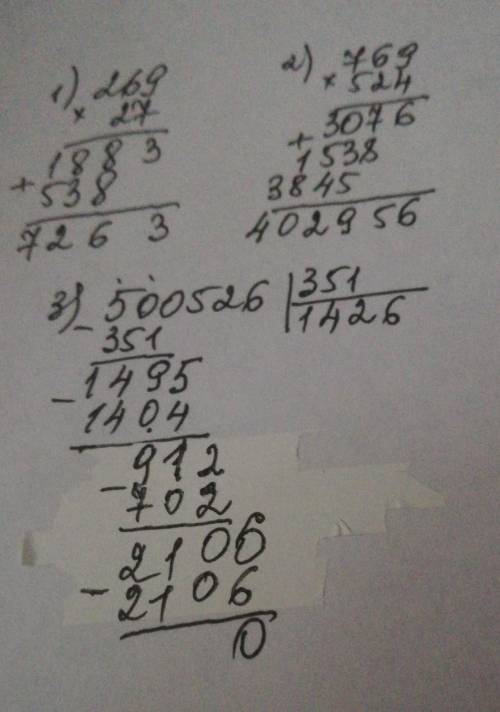 1) 269
× 27
1883
+ 538
7263
2) 769
× 524
3076
+ 1538
3845
402956
3) 500526 | 351
- 351 1426
1495
- 1404
912
- 702
2106
- 2106
0